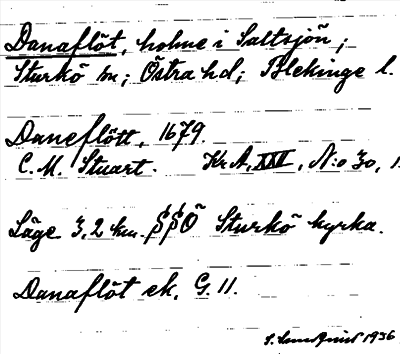 Danaflöt, holme i Saltsjön;
Sturkö sn; Östra hd; Blekinge l.
Daneflött, 1679.
C. M. Stuart. Kr. A, XXV, N:o 30, 1.
Läge 3,2 km. SSÖ Sturkö kyrka.
Danaflöt ek. G. 11.
1936